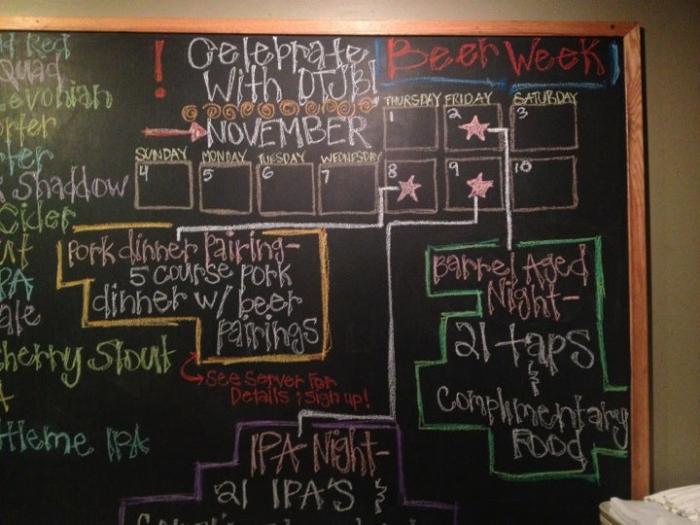 Red
Quad
evonian
orter
rter
Shaddow
Cider
ut
PA
ale
herry Stout
A
Heme IPA
! Celebrate
With DTJB!
Beer Week!
NOVEMBER
THURSDAY FRIDAY SATURDAY
1 2 3
SUNDAY MONDAY TUESDAY WEDNESDAY
4 5 6 7 8 9 10
Pork dinner Pairing-
5 course pork
dinner w/ beer
pairings
See Server For
Details & Sign up!
Barrel Aged
Night-
21 taps
&
Complimentary
Food
IPA Night-
21 IPA'S &